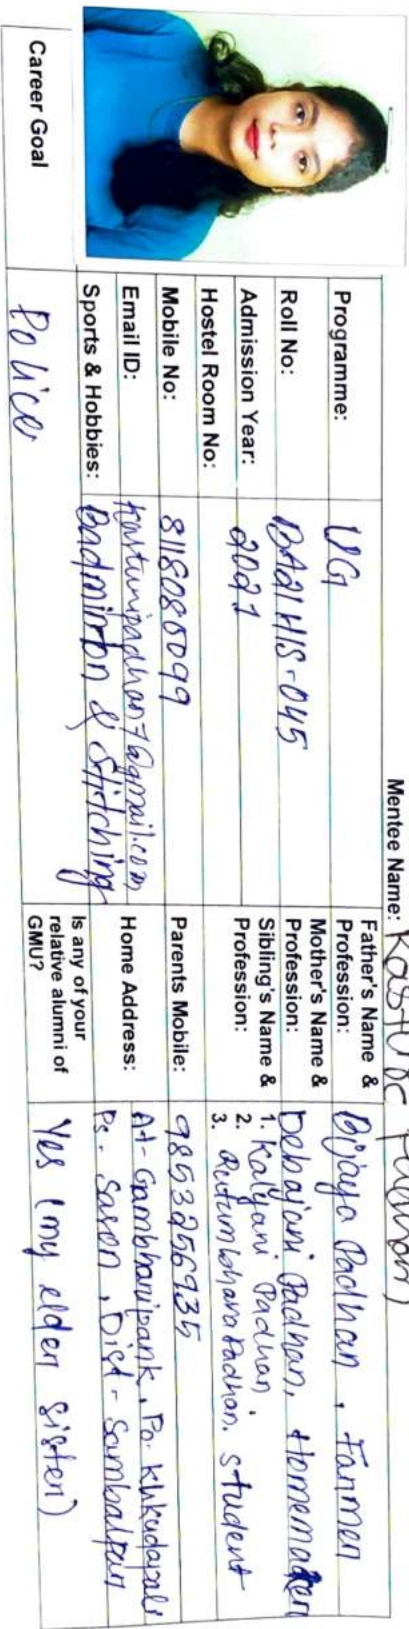 Mentee Name: Kasturi Padhan
Programme: UG
Father's Name & Profession: Bijaya Padhan, Farmer
Roll No: BA21HIS-045
Mother's Name & Profession: Debajani Padhan, Homemaker
Admission Year: 2021
Sibling's Name & Profession:
1. Kalyani Padhan,
2. Rutumbhara Padhan. student
3.
Hostel Room No:
Mobile No: 8118080099
Parents Mobile: 9853256935
Email ID: kasturipadhan7@gmail.com
Home Address: At- Gambharipank, Po-
Ps- Sason, Dist- Sambalpur
Sports & Hobbies: Badminton & Stitching
Is any of your relative alumni of GMU? Yes (my elder sister)
Career Goal Police